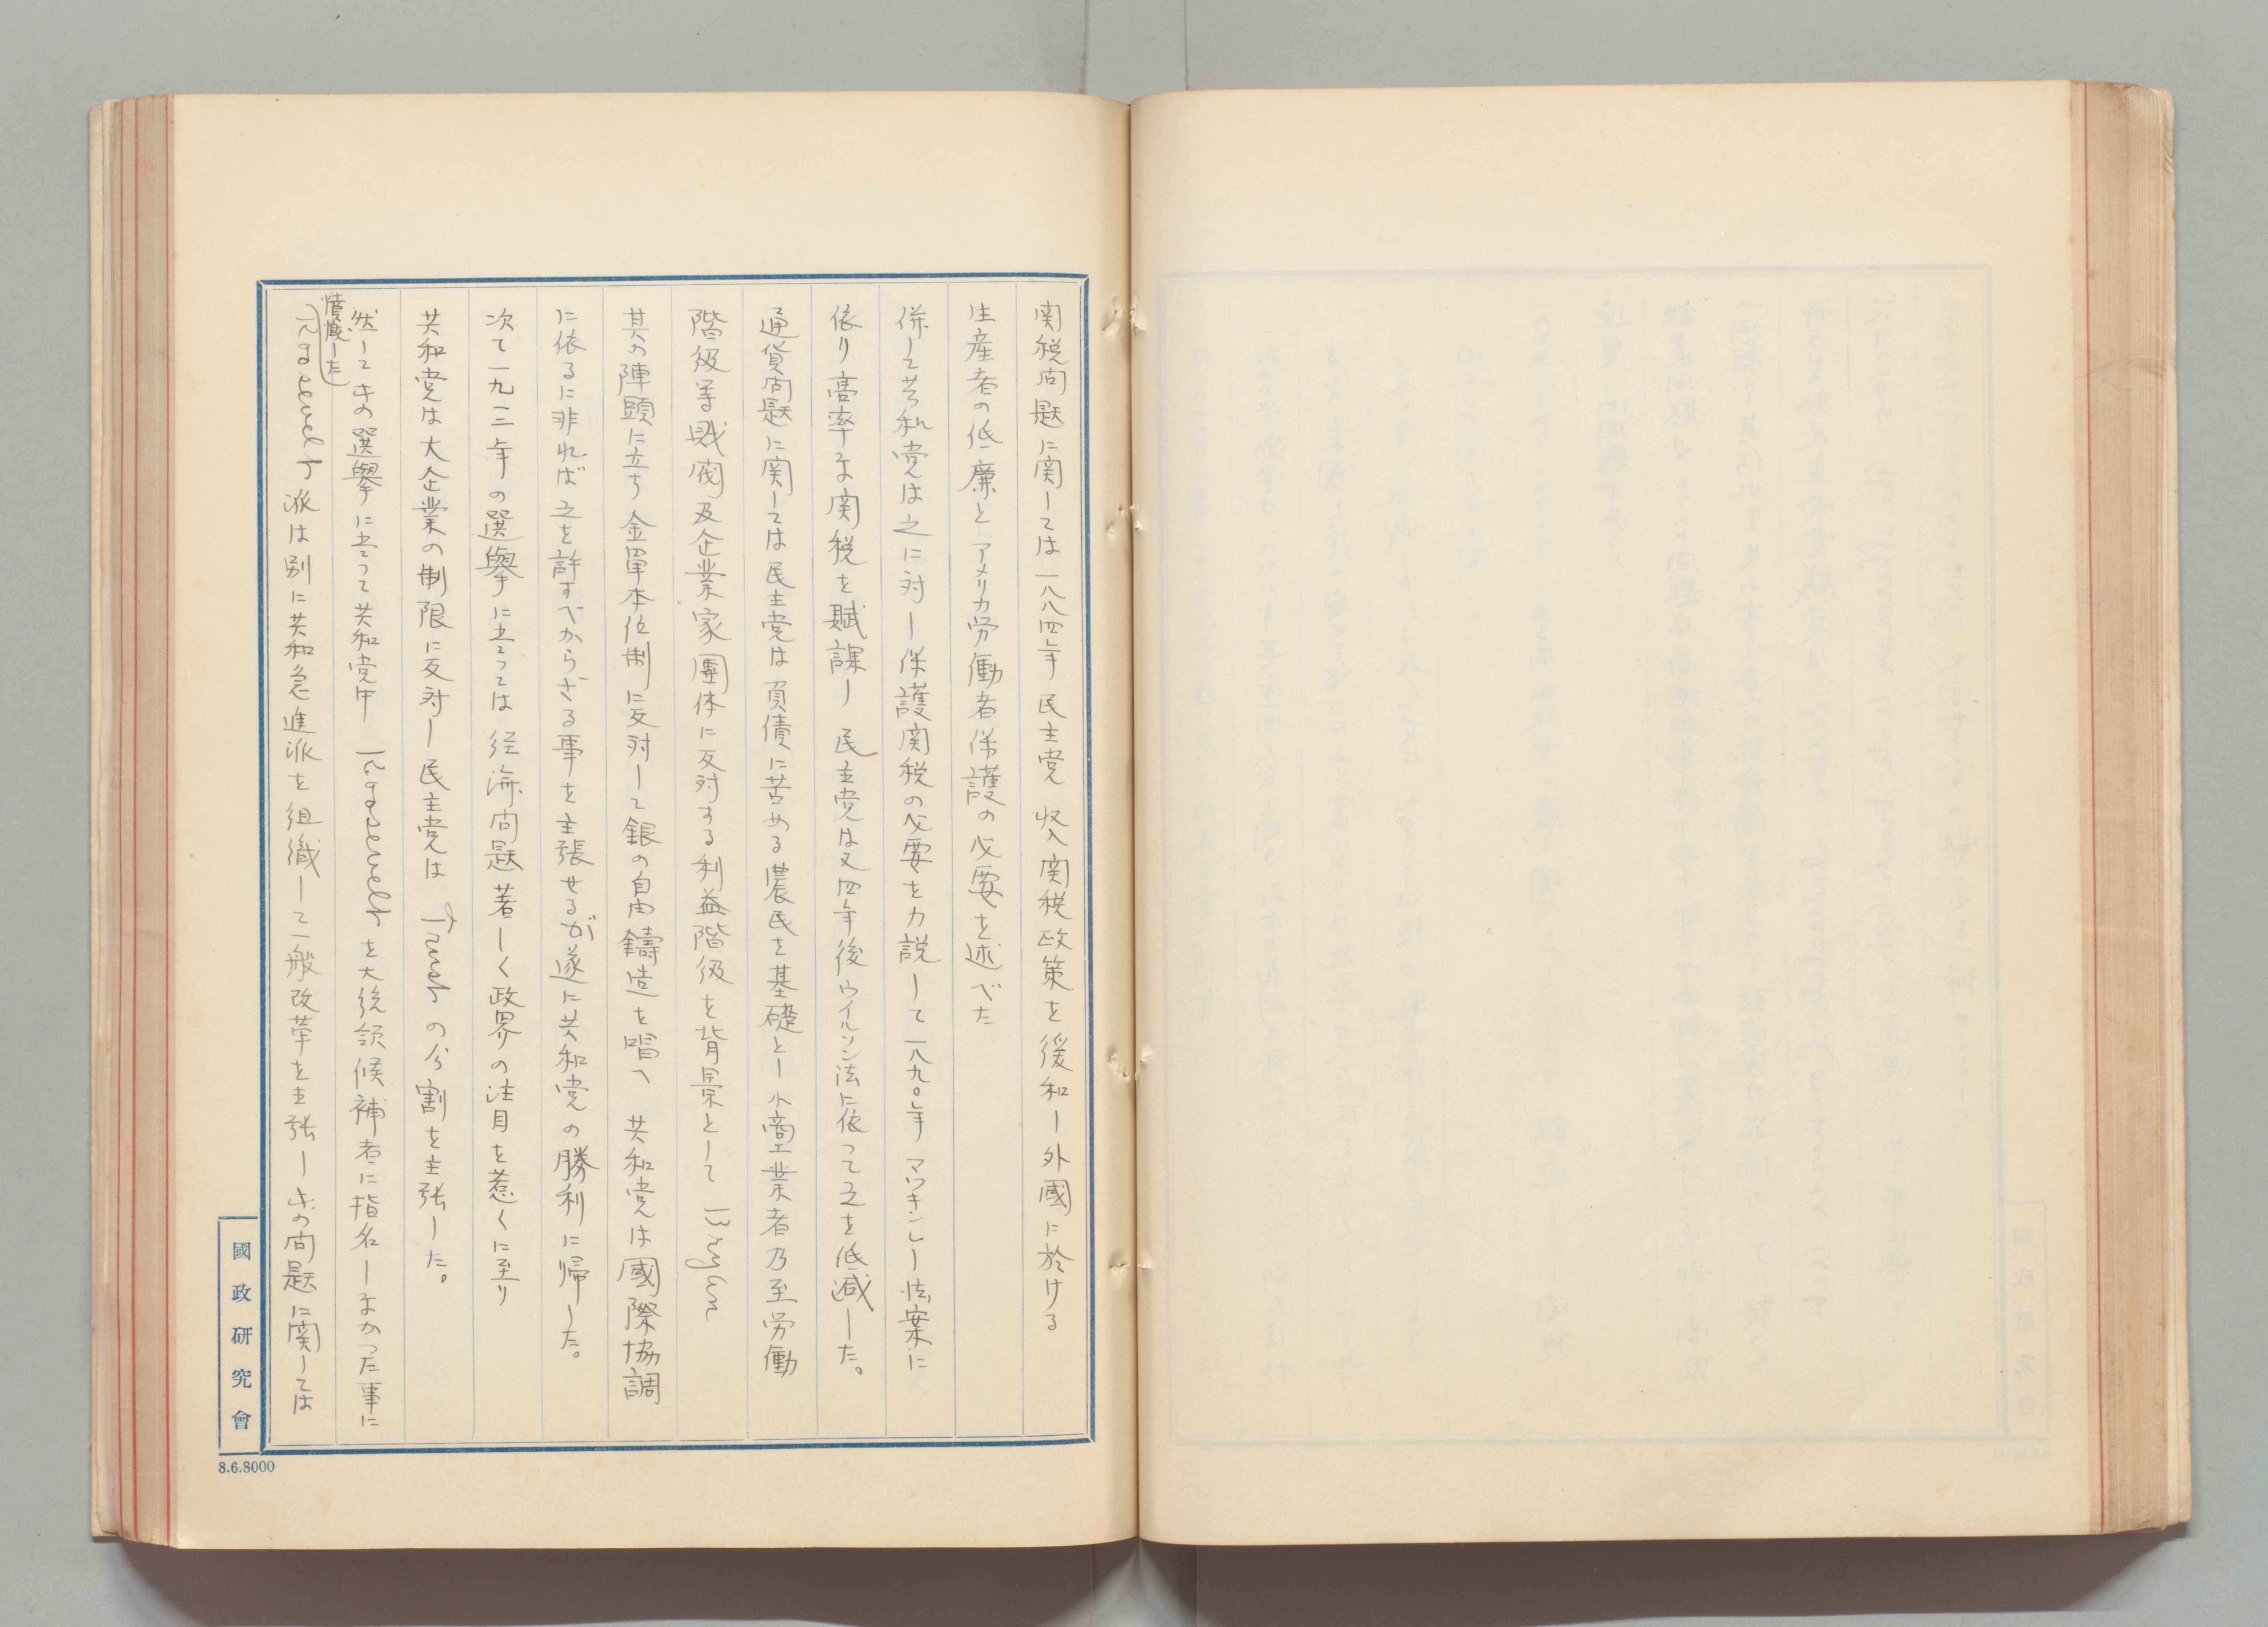 関税問題に関しては一八八四年民主党 収入関税政策を緩和し外國に於ける
生産者の低廉とアメリカ労働者保護の必要を述べた
併して共和党は之に対し保護関税の必要を力説して一八九〇年マツキンレー法案に
依り高率な関税を賦課し 民主党は又四年後ウイルソン法に依つて之を低減した。
通貨問題に関しては民主党は負債に苦める農民を基礎とし小商工業者乃至労働
階級等財閥及企業家團体に反対する利益階級を背景として Bryan
其の陣頭に立ち金單本位制に反対して銀の自由鑄造を唱へ 共和党は國際協調
に依るに非れば之を許すべからざる事を主張せるが遂に共和党の勝利に帰した。
次て一九一二年の選擧に立つては経済問題著しく政界の注目を惹くに至り
共和党は大企業の制限に反対し民主党は Trust の分割を主張した。
然して本の選擧に立つて共和党中 Roosevelt を大統領候補者に指名しなかつた事に
憤慨した
Roosevelt 派は別に共和急進派を組織して一般改革を主張し本の問題に関しては
國政研究會
8.6.8000